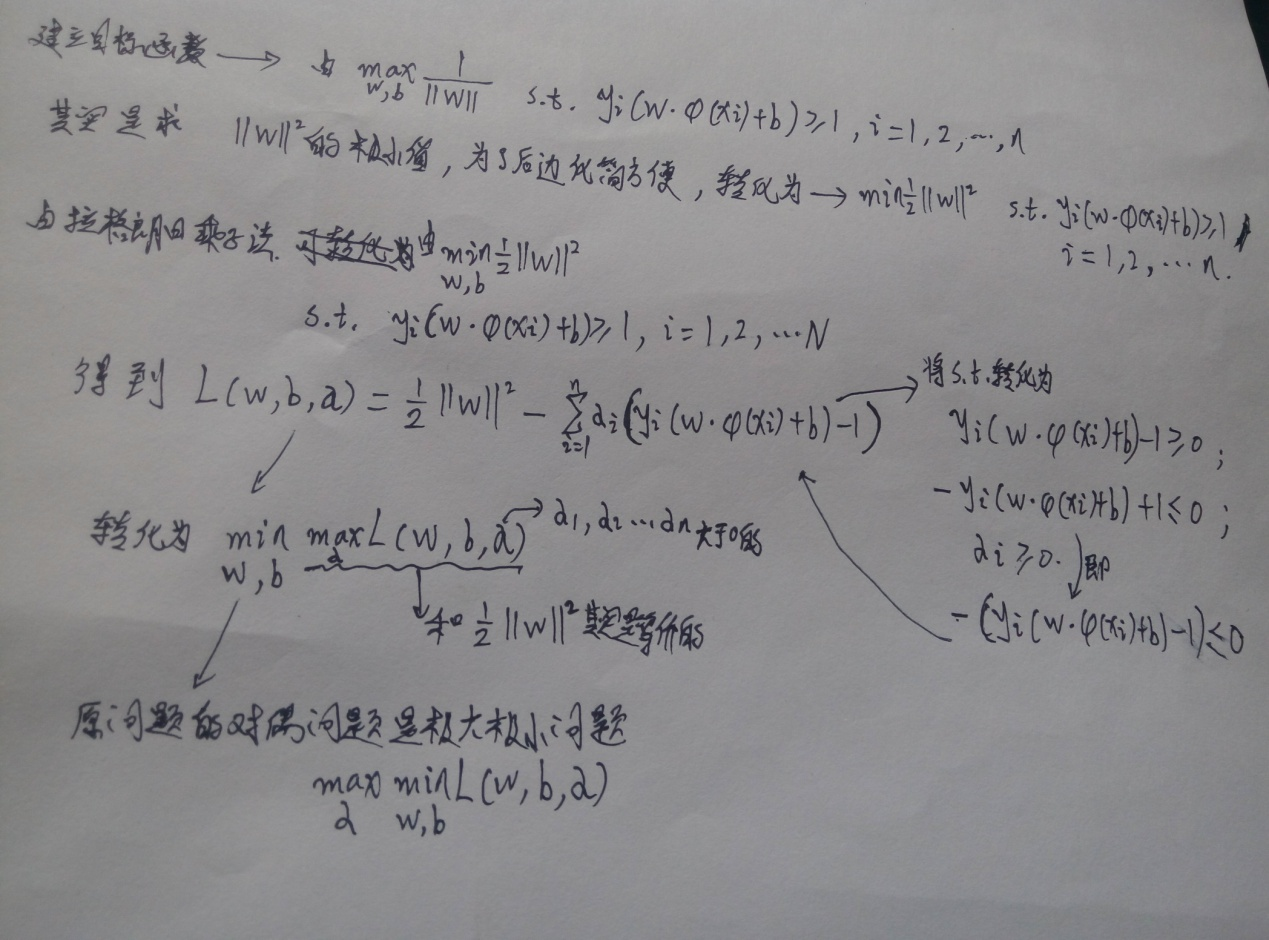 建立目标函数 → 由 max w,b 1/||W|| s.t. yi(w·φ(xi)+b)≥1, i=1,2,…,n
其实是求 ||W||²的极小值，为了后边化简方便，转化为→ min ½||w||² s.t. yi(w·φ(xi)+b)≥1,
i=1,2,…n.
由拉格朗日乘子法. 可转化为 由 min w,b ½||W||²
s.t. yi(w·φ(xi)+b)≥1, i=1,2,…N
得到 L(w,b,α) = ½||w||² - Σ i=1 n αi(yi(w·φ(xi)+b)-1)
将s.t.转化为
yi(w·φ(xi)+b)-1≥0;
-yi(w·φ(xi)+b)+1≤0;
αi≥0. 即
-(yi(w·φ(xi)+b)-1)≤0
转化为 min w,b max α L(w,b,α) → α1,α2…αn大于0的
和½||w||²其实是等价的
原问题的对偶问题是极大极小问题
max α min w,b L(w,b,α)